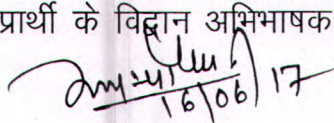 प्रार्थी के विद्वान अभिभाषक
16/06/17